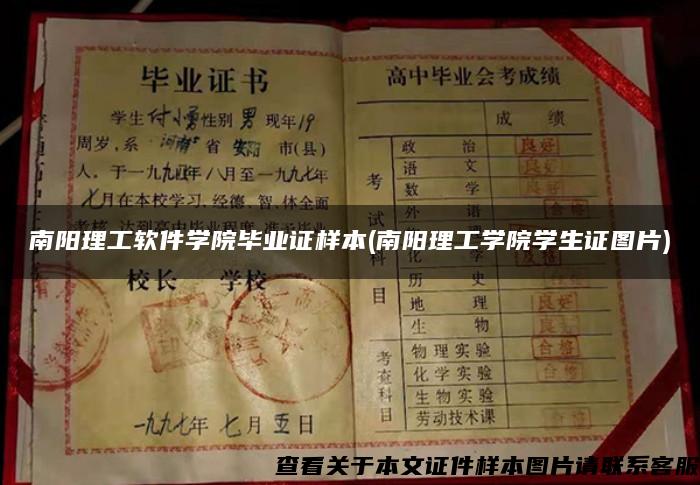 毕业证书
学生付小勇性别男现年19
周岁,系河南省安阳市(县)
人。于一九九四年八月至一九九七年
七月在本校学习,经德、智、体全面
南阳理工软件学院毕业证样本(南阳理工学院学生证图片)
校长 学校
一九九七年七月五日
高中毕业会考成绩
成绩
考试科目
政治 良好
语文 良好
数学
外语 合格
化学
历史 良好
地理 良好
生物 良好
考查科目
物理实验 合格
化学实验 合格
生物实验
劳动技术课 合格
查看关于本文证件样本图片请联系客服